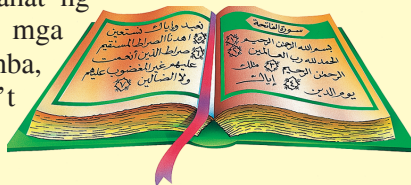 anat ng
mga
mba,
't
سورة الفاتحة
بسم الله الرحمن الرحيم
الحمد لله رب العالمين
الرحمن الرحيم ملك
يوم الدين إياك
نعبد وإياك نستعين
اهدنا الصراط المستقيم
صراط الذين أنعمت
عليهم غير المغضوب عليهم
ولا الضالين